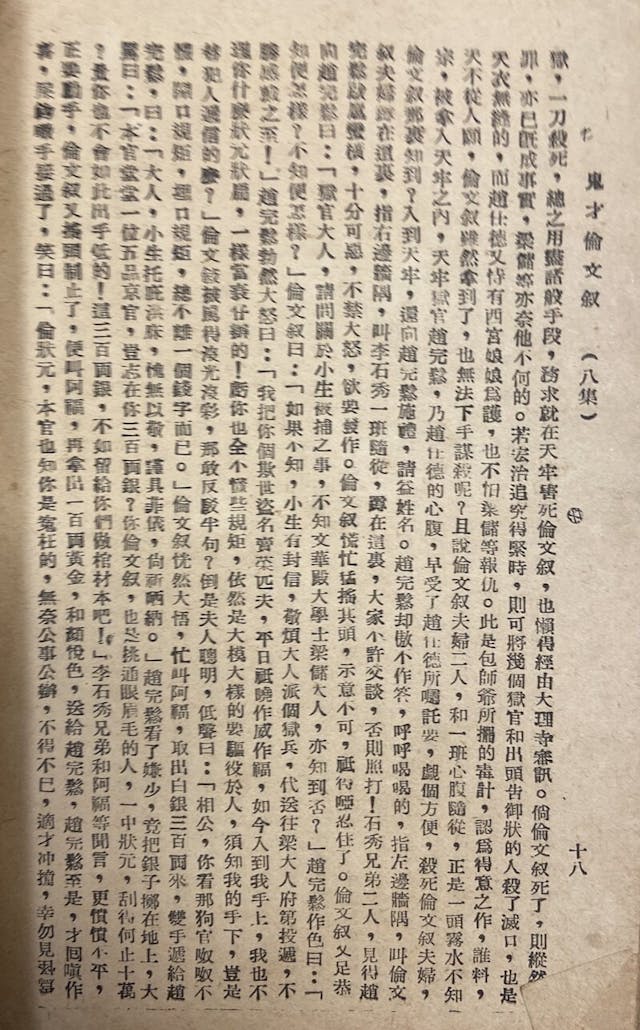 鬼才倫文叙　（八集）　十八
獄，一刀殺死，總之用盡諸般手段，務求就在天牢害死倫文叙，也懶得經由大理寺審訊。倘倫文叙死了，則縱然
罪，亦已旣成事實，梁儲等亦奈他不何的。若宏治追究得緊時，則可將幾個獄官和出頭告御狀的人殺了滅口，也是
天衣無縫的，而趙仕德又恃有西宮娘娘爲護，也不怕梁儲等報仇。此是包師爺所擺的毒計，認爲得意之作，誰料，
天不從人願，倫文叙雖然拿到了，也無法下手謀殺呢？且說倫文叙夫婦二人，和一班心腹隨從，正是一頭霧水不知
宗，被拿入天牢之內，天牢獄官趙完鬆，乃趙仕德的心腹，早受了趙仕德所囑託要，覷個方便，殺死倫文叙夫婦，
倫文叙那裏知到？入到天牢，還向趙完鬆施禮，請益姓名。趙完鬆却傲不作答，呼呼喝喝的，指左邊牆隅，叫倫文
叙夫婦蹲在這裏，指右邊牆隅，叫李石秀一班隨從，蹲在這裏，大家不許交談，否則照打！石秀兄弟二人，見得趙
完鬆啟屈蠻橫，十分可惡，不禁大怒，欲要發作。倫文叙慌忙猛搖其頭，示意不可，祗得啞忍住了。倫文叙又足恭
向趙完鬆曰：「獄官大人，請問關於小生被捕之事，不知文華殿大學士梁儲大人，亦知到否？」趙完鬆作色曰：「
知便怎樣？不知便怎樣？」倫文叙曰：「如果不知，小生有封信，敬煩大人派個獄兵，代送往梁大人府第投遞，不
勝感激之至！」趙完鬆勃然大怒曰：「我把你個欺世盜名賣菜匹夫，平日祗曉作威作福，如今入到我手上，我也不
理你什麼狀元狀扁，一樣當衰仔辦的！虧你也全不懂些規矩，依然是大模大樣的要驅役於人，須知我的手下，豈是
替犯人遞信的麼？」倫文叙被罵得淚光淚彩，那敢反駁半句？倒是夫人聰明，低聲曰：「相公，你看那狗官呶呶不
休，開口規矩，埋口規矩，總不離一個錢字而已。」倫文叙恍然大悟，忙叫阿福，取出白銀三百両來，雙手遞給趙
完鬆，曰：「大人，小生托庇洪庥，愧無以敬，謹具菲儀，尙祈哂納。」趙完鬆看了嫌少，竟把銀子擲在地上，大
罵曰：「本官堂堂一位五品京官，豈志在你三百両銀？你倫文叙，也是挑通眼眉毛的人，一中狀元，刮得何止十萬
？量你也不會如此出手低的！這三百両銀，不如留給你們做棺材本吧！」李石秀兄弟和阿福等聞言，更憤憤不平，
正要動手，倫文叙又搖頭制止了，便叫阿福，再拿出一百両黃金，和顏悅色，送給趙完鬆，趙完鬆至是，才回嗔作
喜，梁時雙手接過了，笑曰：「倫狀元，本官也知你是寃枉的，無奈公事公辦，不得不已，適才冲撞，幸勿見怪